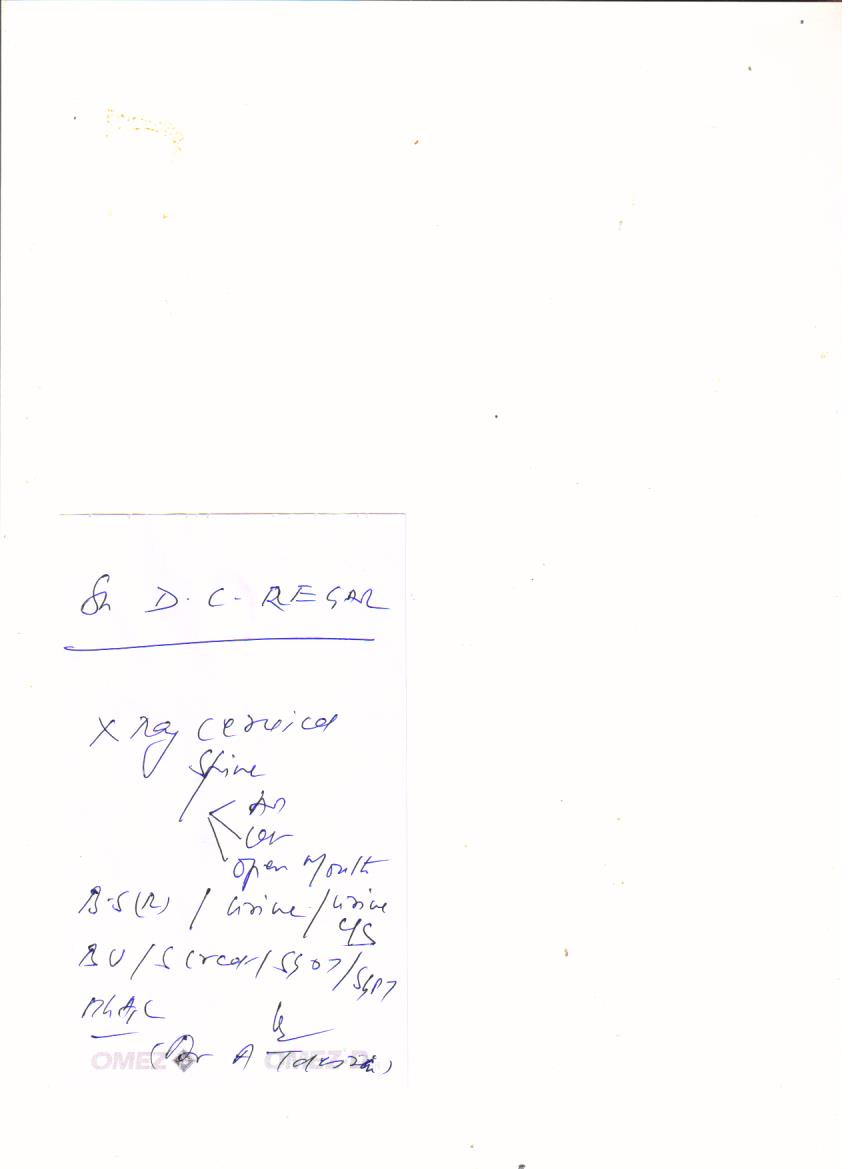 Sh D. C. REGAR
X Ray cervical
Spine
AP
Lat
Open Mouth
B.S(R) / Urine / Urine
C/S
BU / S Creat / SGOT / SGPT
HbA1C
(Dr A
OMEZ OMEZ